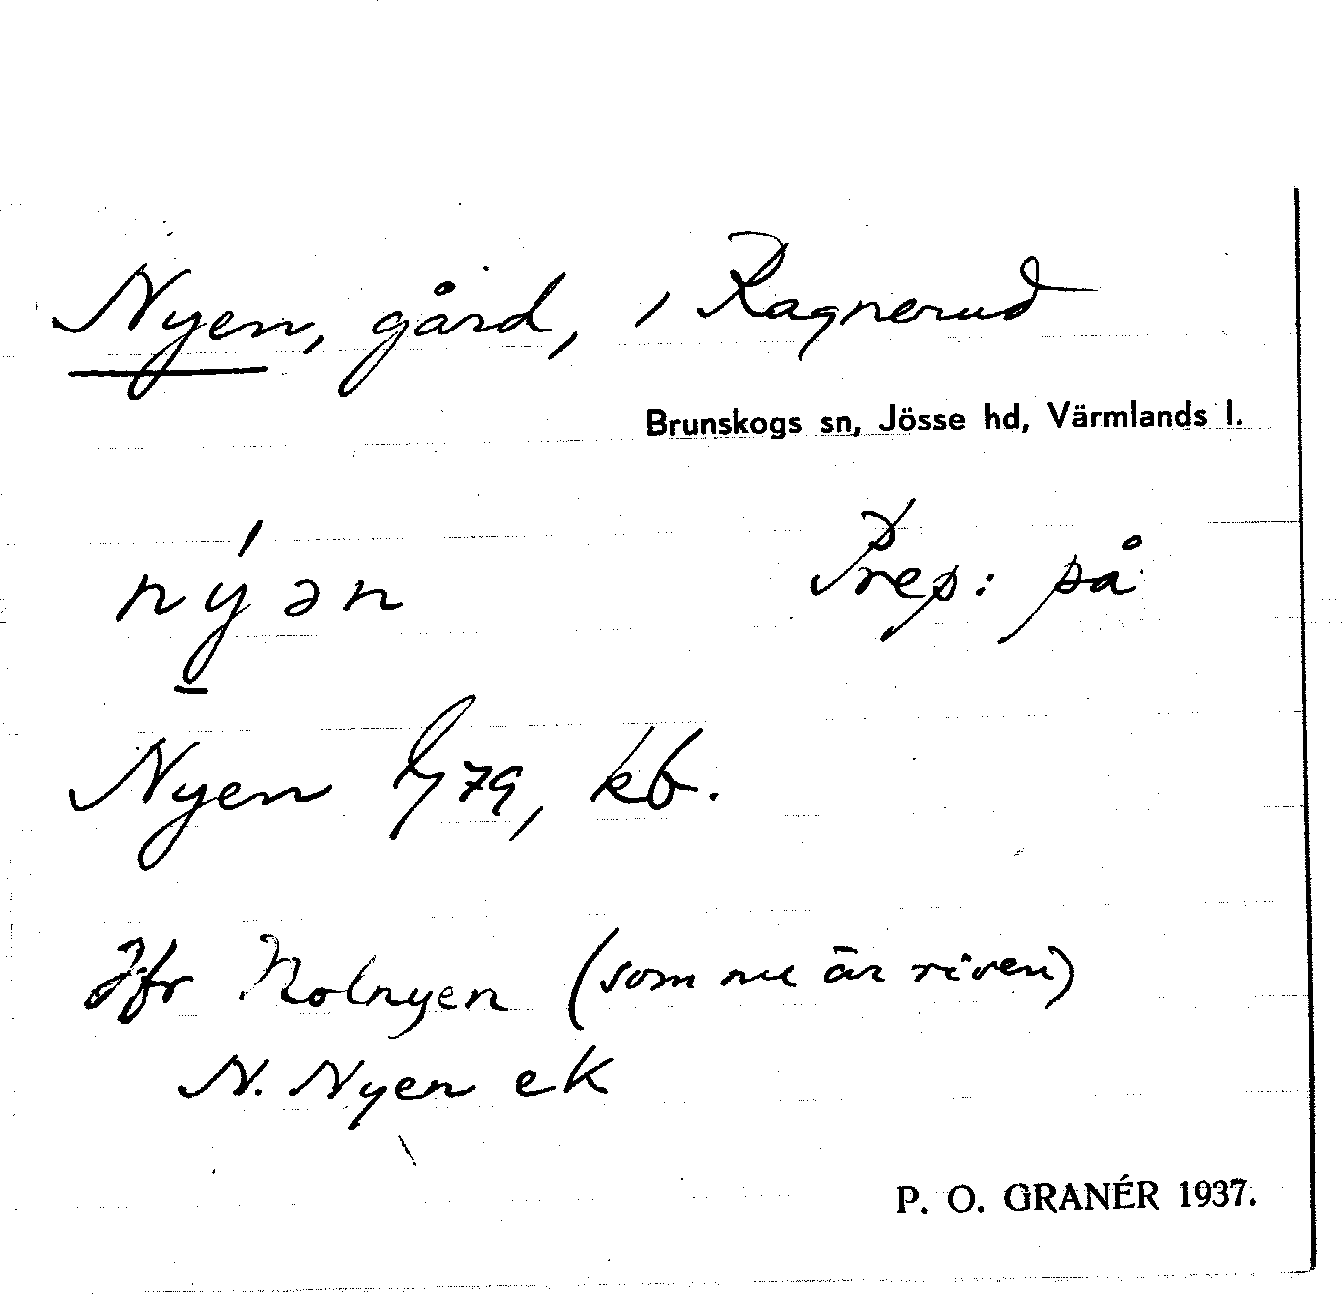 Nyen, gård, i Ragnerud
Brunskogs sn, Jösse hd, Värmlands l.
nýən Prep: på
Nyen 1/7 79, kb.
Jfr Nolnyen (som nu är riven)
N. Nyen ek
P. O. GRANÉR 1937.